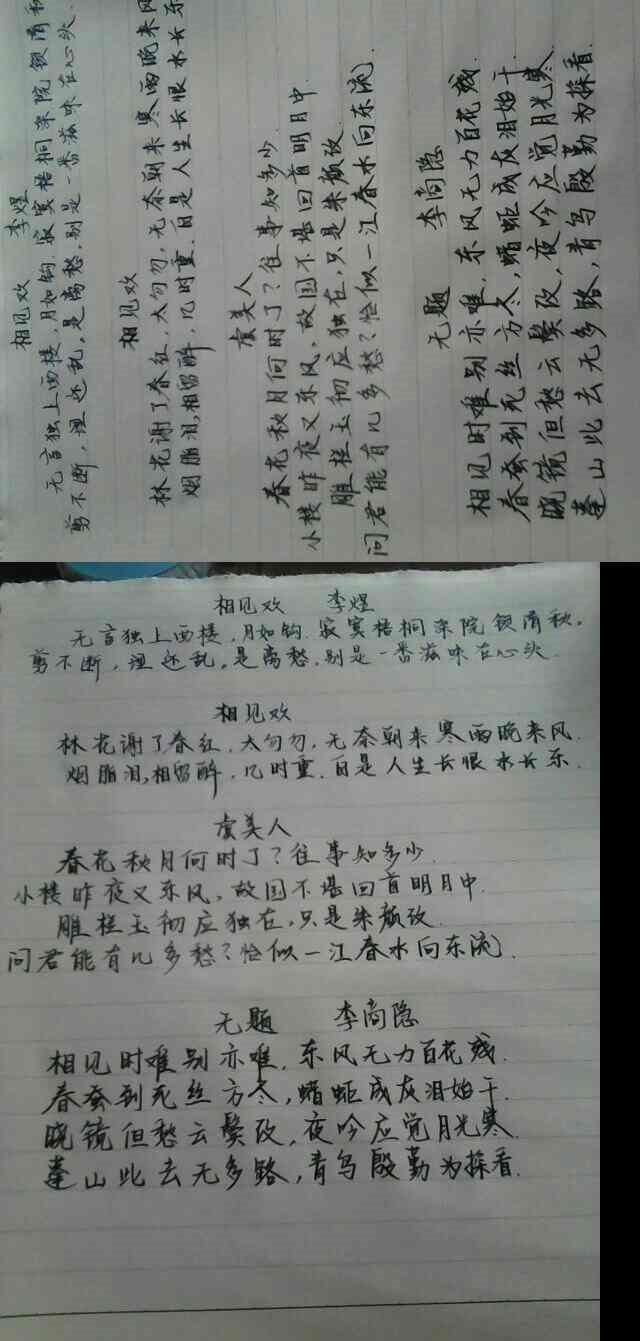 相见欢 李煜
无言独上西楼，月如钩，寂寞梧桐深院锁清秋
剪不断，理还乱，是离愁，别是一番滋味在心头
相见欢
林花谢了春红，太匆匆，无奈朝来寒雨晚来风
胭脂泪，相留醉，几时重，自是人生长恨水长东
虞美人
春花秋月何时了？往事知多少.
小楼昨夜又东风，故国不堪回首明月中.
雕栏玉彻应独在，只是朱颜改.
问君能有几多愁？恰似一江春水向东流.
无题 李商隐
相见时难别亦难，东风无力百花残.
春蚕到死丝方尽，蜡蚷成灰泪始干.
晓镜但愁云鬓改，夜吟应觉月光寒.
蓬山此去无多路，青鸟殷勤为探看.
相见欢 李煜
无言独上西楼，月如钩，寂寞梧桐深院锁清秋.
剪不断，理还乱，是离愁，别是一番滋味在心头.
相见欢
林花谢了春红，太匆匆，无奈朝来寒雨晚来风.
胭脂泪，相留醉，几时重，自是人生长恨水长东.
虞美人
春花秋月何时了？往事知多少.
小楼昨夜又东风，故国不堪回首明月中.
雕栏玉彻应独在，只是朱颜改.
问君能有几多愁？恰似一江春水向东流.
无题 李商隐
相见时难别亦难，东风无力百花残.
春蚕到死丝方尽，蜡蚷成灰泪始干.
晓镜但愁云鬓改，夜吟应觉月光寒.
蓬山此去无多路，青鸟殷勤为探看.